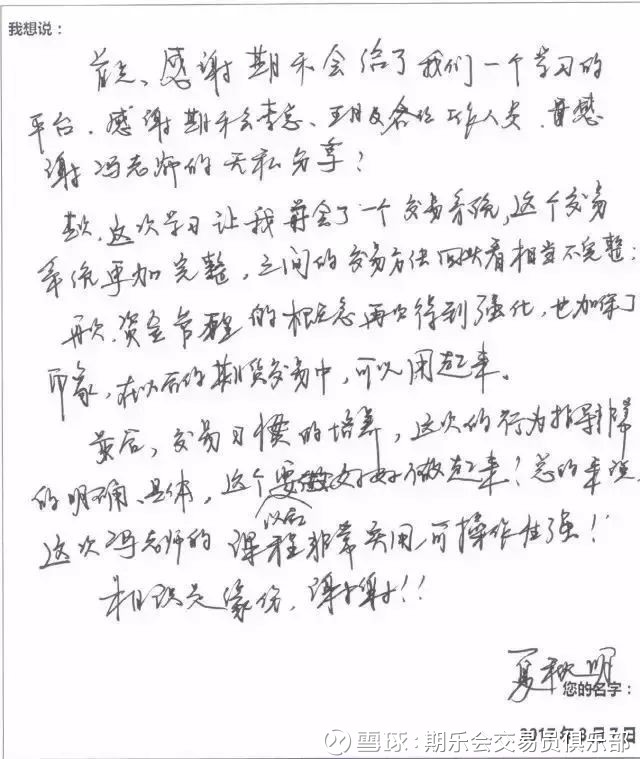 我想说：
首先、感谢期乐会给了我们一个学习的
平台．感谢期乐会李总、及各位工作人员，感
谢冯老师的无私分享！
其次，这次学习让我学会了一个交易系统，这个交易
系统更加完整，之间的交易方法回头看相当不完整；
再次，资金管理的概念再次得到强化，也加深了
印象，在以后的期货交易中，可以用起来。
最后，交易习惯的培养，这次的行为指导非常
的明确、具体，这个要好好做起来！总的来说，
以后
这次冯老师的课程非常实用，可操作性强！
相识是缘份，谢谢！！
夏秋明
您的名字：
2017年8月7日
雪球：期乐会交易员俱乐部